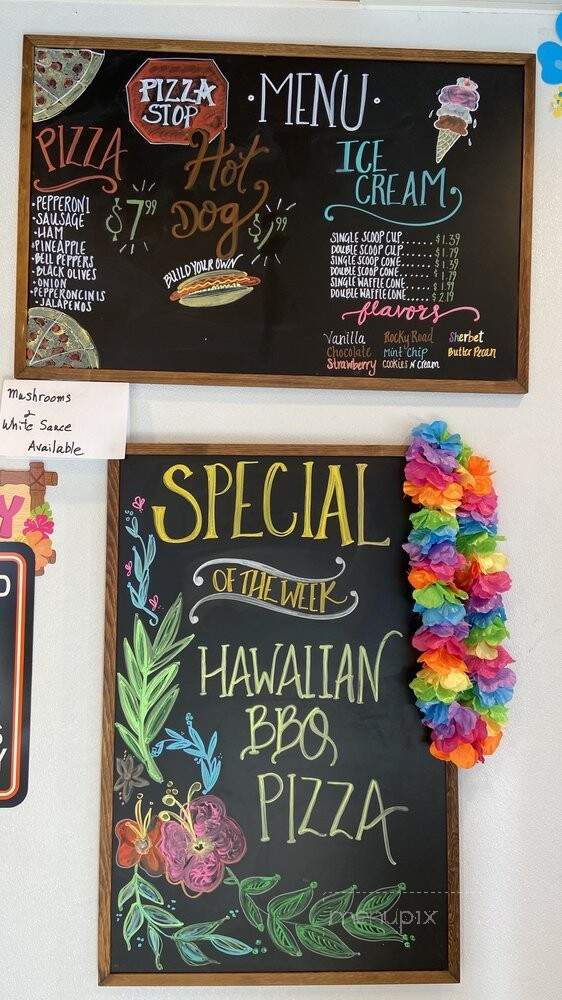 PIZZA
STOP
MENU
PIZZA
PEPPERONI
SAUSAGE
HAM
PINEAPPLE
BELL PEPPERS
BLACK OLIVES
ONION
PEPPERONCINIS
JALAPENOS
$7.99
Hot
DOG
BUILD YOUR OWN
ICE
CREAM
SINGLE SCOOP CUP......$1.39
DOUBLE SCOOP CUP......$1.79
SINGLE SCOOP CONE.....$1.39
DOUBLE SCOOP CONE.....$1.79
SINGLE WAFFLE CONE....$1.99
DOUBLE WAFFLE CONE....$2.19
flavors
Vanilla Rocky Road Sherbet
Chocolate Mint Chip Butter Pecan
Strawberry COOKIES N CREAM
Mushrooms
&
White Sauce
Available
SPECIAL
OF THE WEEK
HAWAIIAN
BBQ
PIZZA
menupix